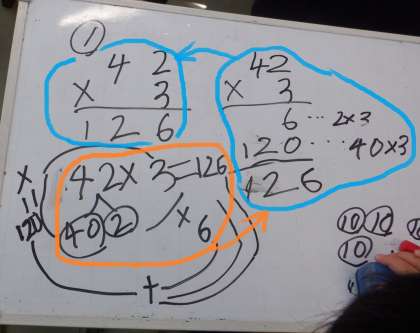 ①
4 2
× 3
1 2 6
42
× 3
6 ... 2×3
120 ... 40×3
126
42×3=126
40 2 × 6
×
11
120
+
10 10
10